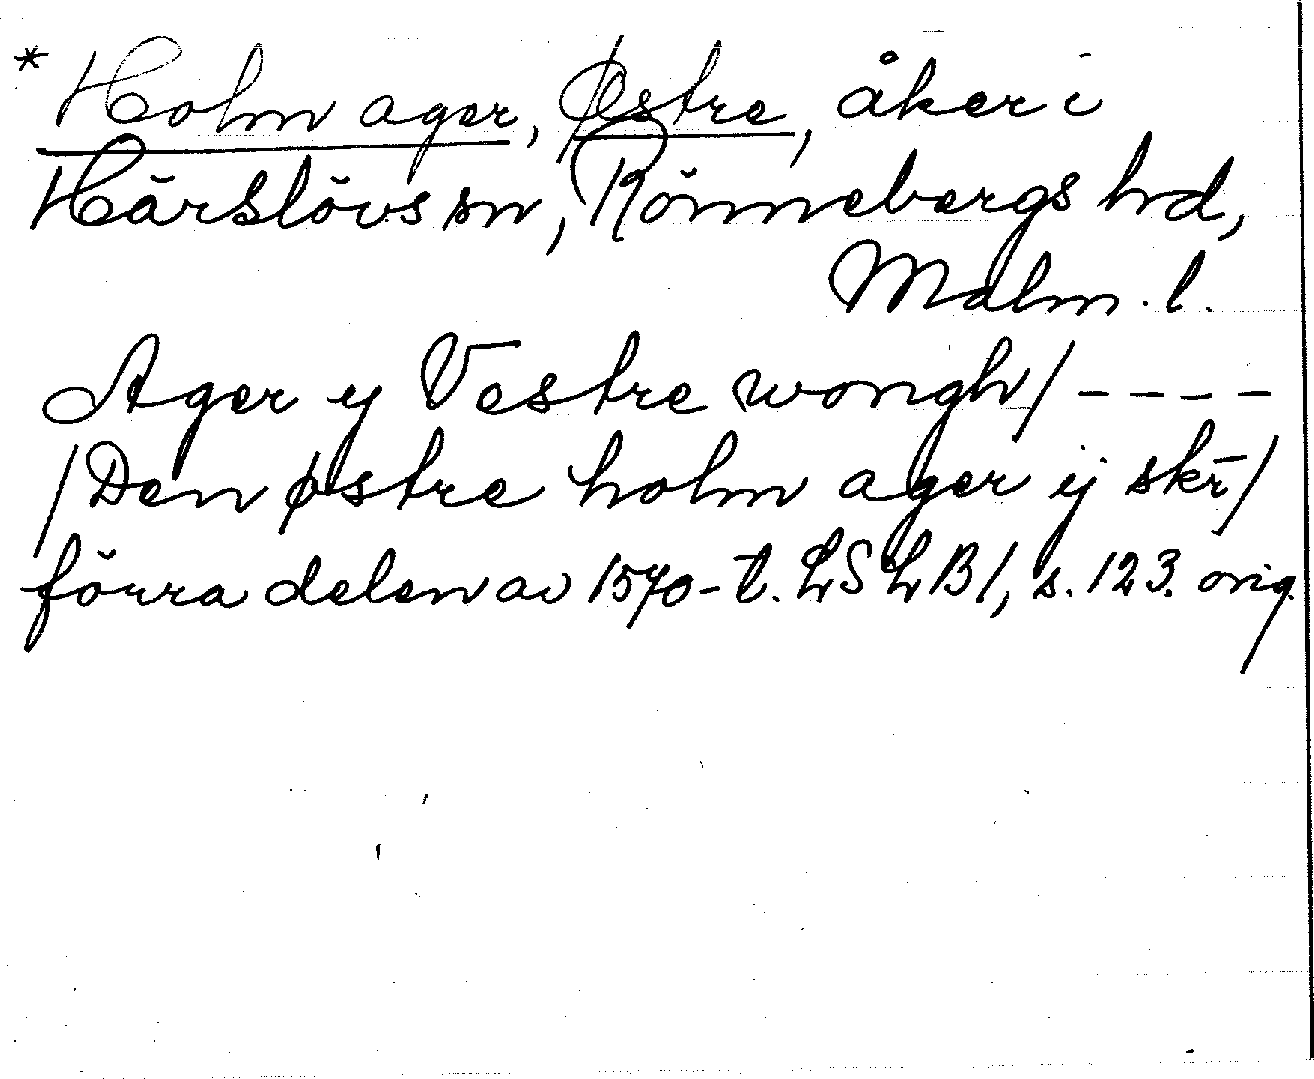 * Holm ager, Østre, åker i
Härslövs sn, Rönnebergs hd,
Malm. l.
Ager ij Vestre wongh/ - - - -
/Den østre holm ager ij skr̄/
förra delen av 1570-t. LSLB1, s. 123. orig.